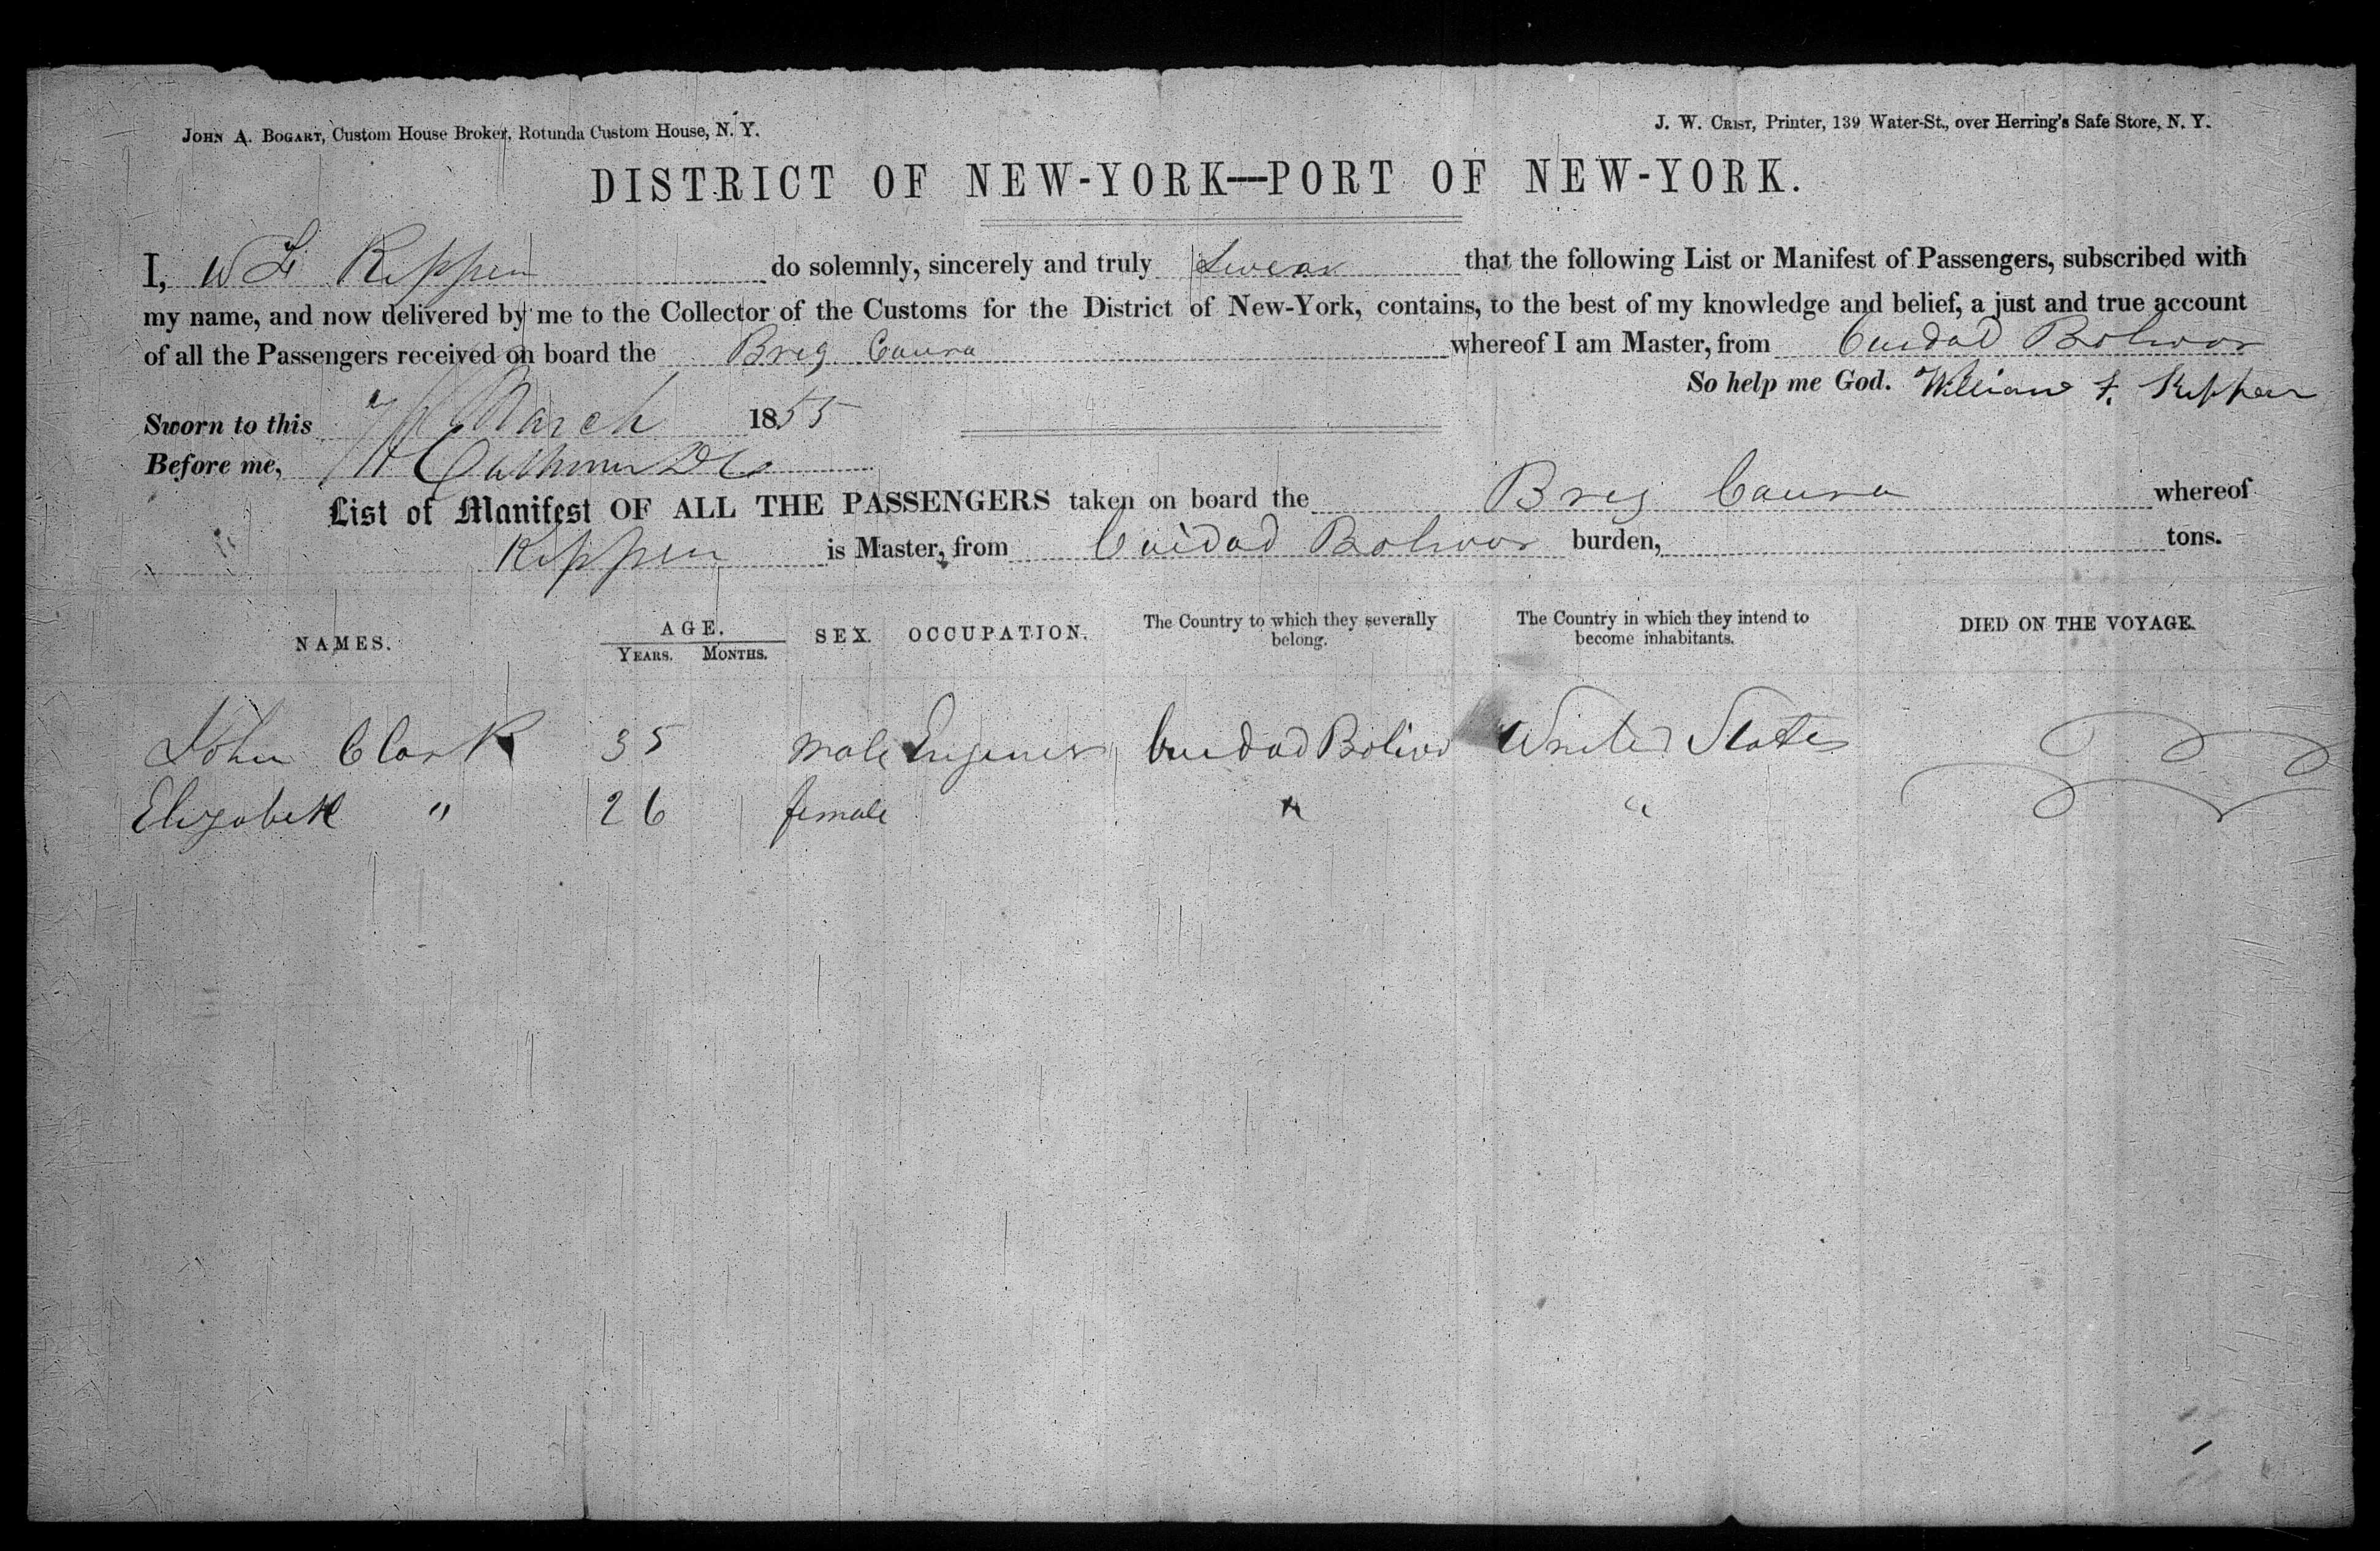 JOHN A. BOGART, Custom House Broker, Rotunda Custom House, N. Y.
J. W. CRIST, Printer, 139 Water-St., over Herring's Safe Store, N. Y.
DISTRICT OF NEW-YORK—PORT OF NEW-YORK.
I, W F Kippen do solemnly, sincerely and truly Swear that the following List or Manifest of Passengers, subscribed with
my name, and now delivered by me to the Collector of the Customs for the District of New-York, contains, to the best of my knowledge and belief, a just and true account
of all the Passengers received on board the Breg Caura whereof I am Master, from Cuidad Bolivar
So help me God. William F. Kippen
Sworn to this March 1855
Before me,
List of Manifest OF ALL THE PASSENGERS taken on board the Breg Caura whereof
Kippen is Master, from Cuidad Bolivar burden, tons.
NAMES. AGE. YEARS. MONTHS. SEX. OCCUPATION. The Country to which they severally belong. The Country in which they intend to become inhabitants. DIED ON THE VOYAGE.
John Clark 35 male Engineer Cuidad Bolivar United States
Elizabeth " 26 female " "